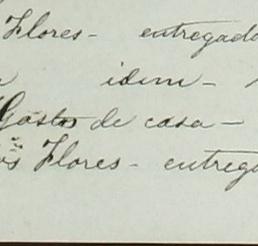 Flores - entregado
idem -
Gastos de casa -
os Flores - entreg